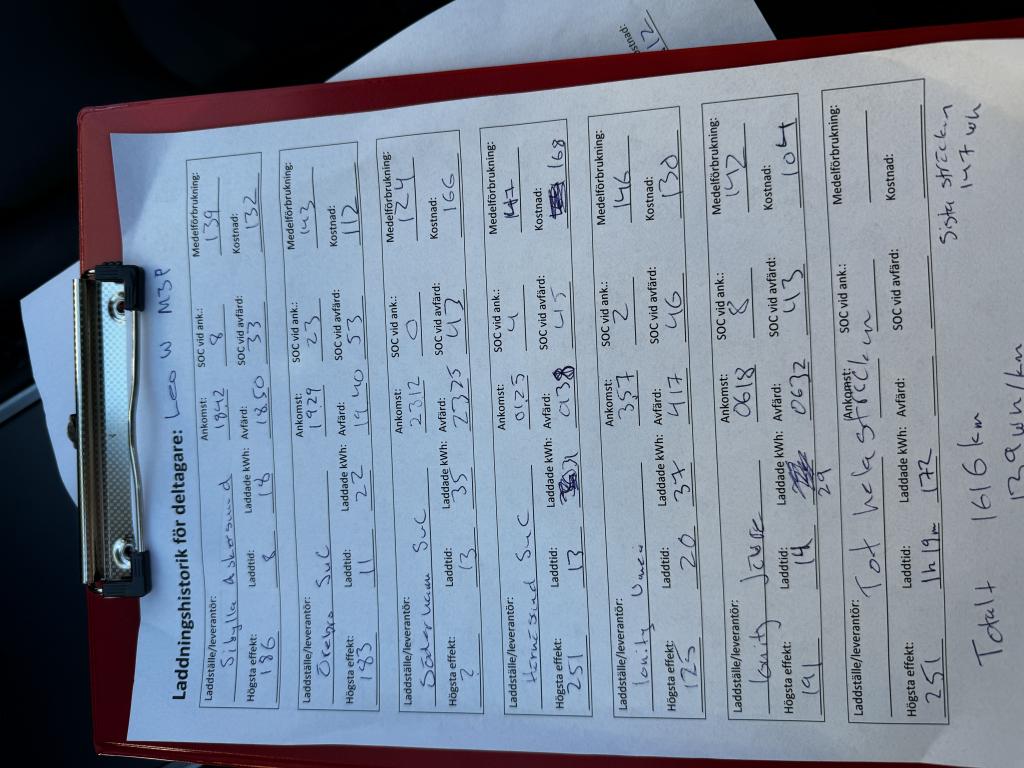 Laddningshistorik för deltagare: Leo W M3P
Laddställe/leverantör: Ankomst: SOC vid ank.: Medelförbrukning:
Sibylla Askersund 1842 8 139
Högsta effekt: Laddtid: Laddade kWh: Avfärd: SOC vid avfärd: Kostnad:
186 8 18 1850 33 132
Laddställe/leverantör: Ankomst: SOC vid ank.: Medelförbrukning:
Örebro SuC 1929 23 143
Högsta effekt: Laddtid: Laddade kWh: Avfärd: SOC vid avfärd: Kostnad:
183 11 22 1940 53 112
Laddställe/leverantör: Ankomst: SOC vid ank.: Medelförbrukning:
Söderhamn SuC 2312 0 124
Högsta effekt: Laddtid: Laddade kWh: Avfärd: SOC vid avfärd: Kostnad:
? 13 35 2325 43 166
Laddställe/leverantör: Ankomst: SOC vid ank.: Medelförbrukning:
Härnösand SuC 0125 4 147
Högsta effekt: Laddtid: Laddade kWh: Avfärd: SOC vid avfärd: Kostnad:
251 13 0138 45 168
Laddställe/leverantör: Ankomst: SOC vid ank.: Medelförbrukning:
Ionity Umeå 357 2 146
Högsta effekt: Laddtid: Laddade kWh: Avfärd: SOC vid avfärd: Kostnad:
125 20 37 417 46 130
Laddställe/leverantör: Ankomst: SOC vid ank.: Medelförbrukning:
Ionity Jävre 0618 8 142
Högsta effekt: Laddtid: Laddade kWh: Avfärd: SOC vid avfärd: Kostnad:
191 14 29 0632 43 104
Laddställe/leverantör: Ankomst: SOC vid ank.: Medelförbrukning:
Tot hela sträckan
Högsta effekt: Laddtid: Laddade kWh: Avfärd: SOC vid avfärd: Kostnad:
251 1h 19m 172
Sista sträckan
147 wh
Totalt 1616 km
139 wh/km